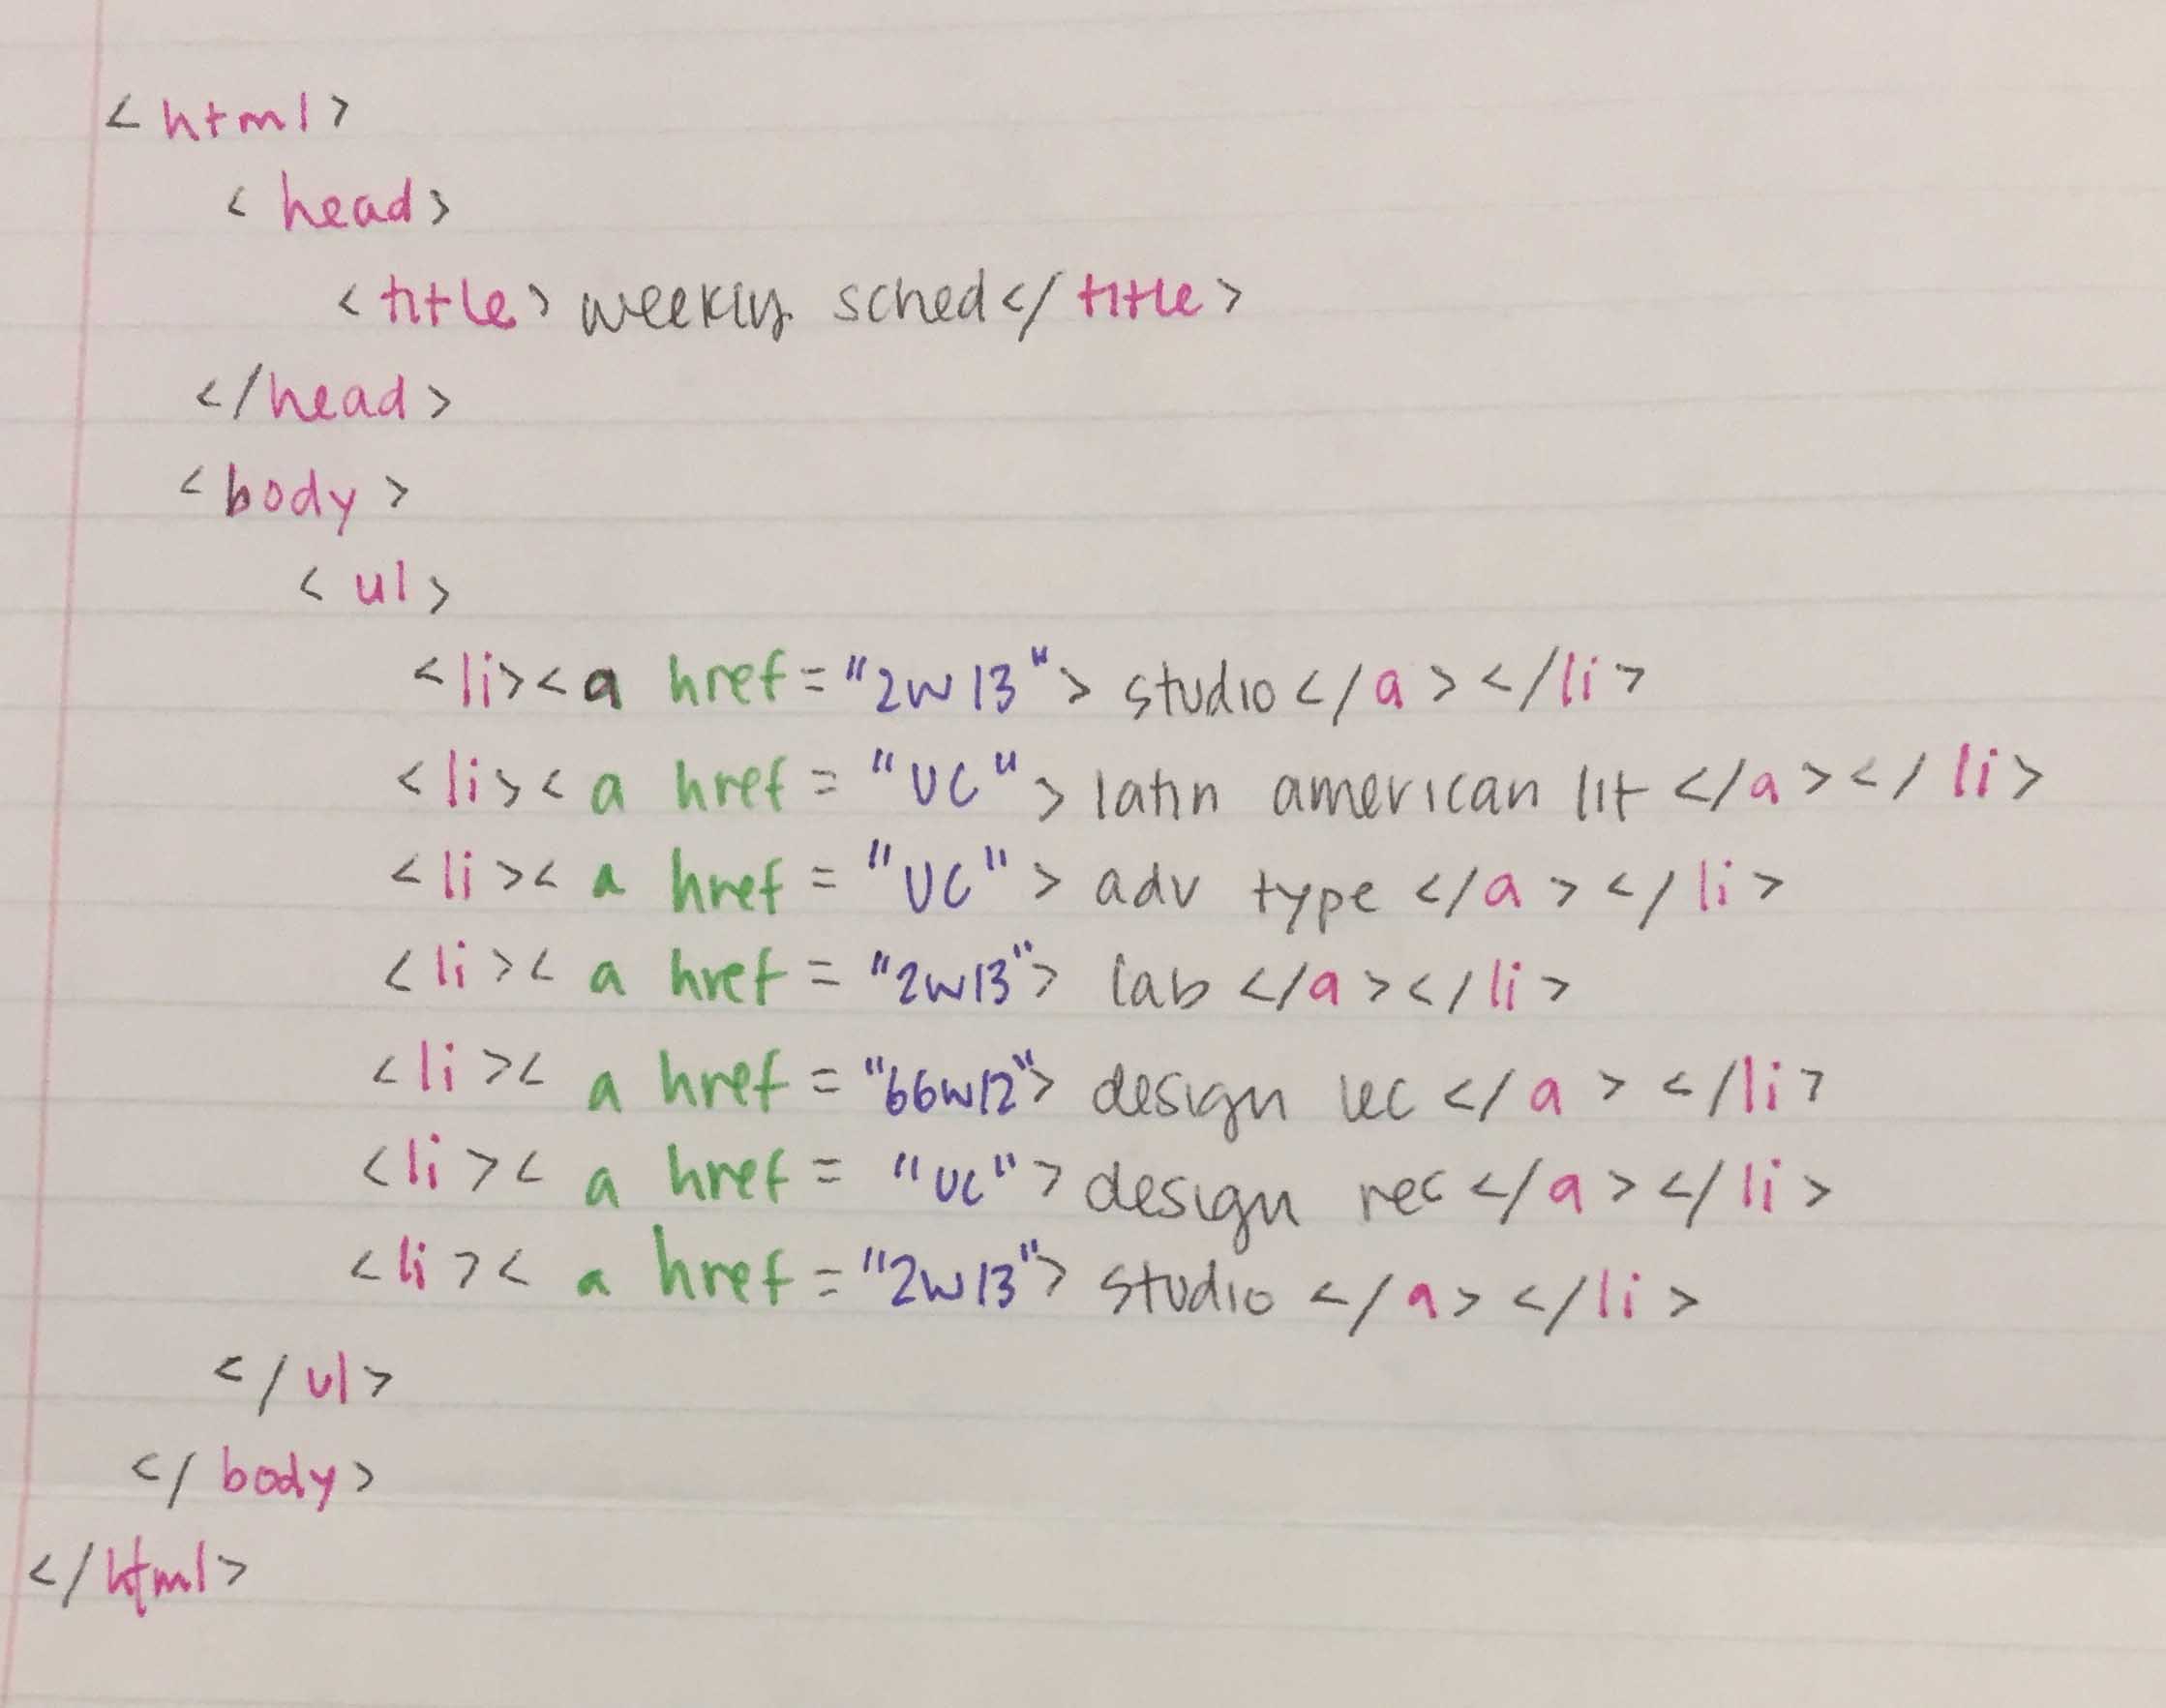 <html>
<head>
<title> weekly sched</title>
</head>
<body>
<ul>
<li><a href="2w13"> studio</a></li>
<li><a href="UC"> latin american lit</a></li>
<li><a href="UC"> adv type</a></li>
<li><a href="2w13"> lab</a></li>
<li><a href="66w12"> design lec</a></li>
<li><a href="UC"> design rec</a></li>
<li><a href="2w13"> studio</a></li>
</ul>
</body>
</html>